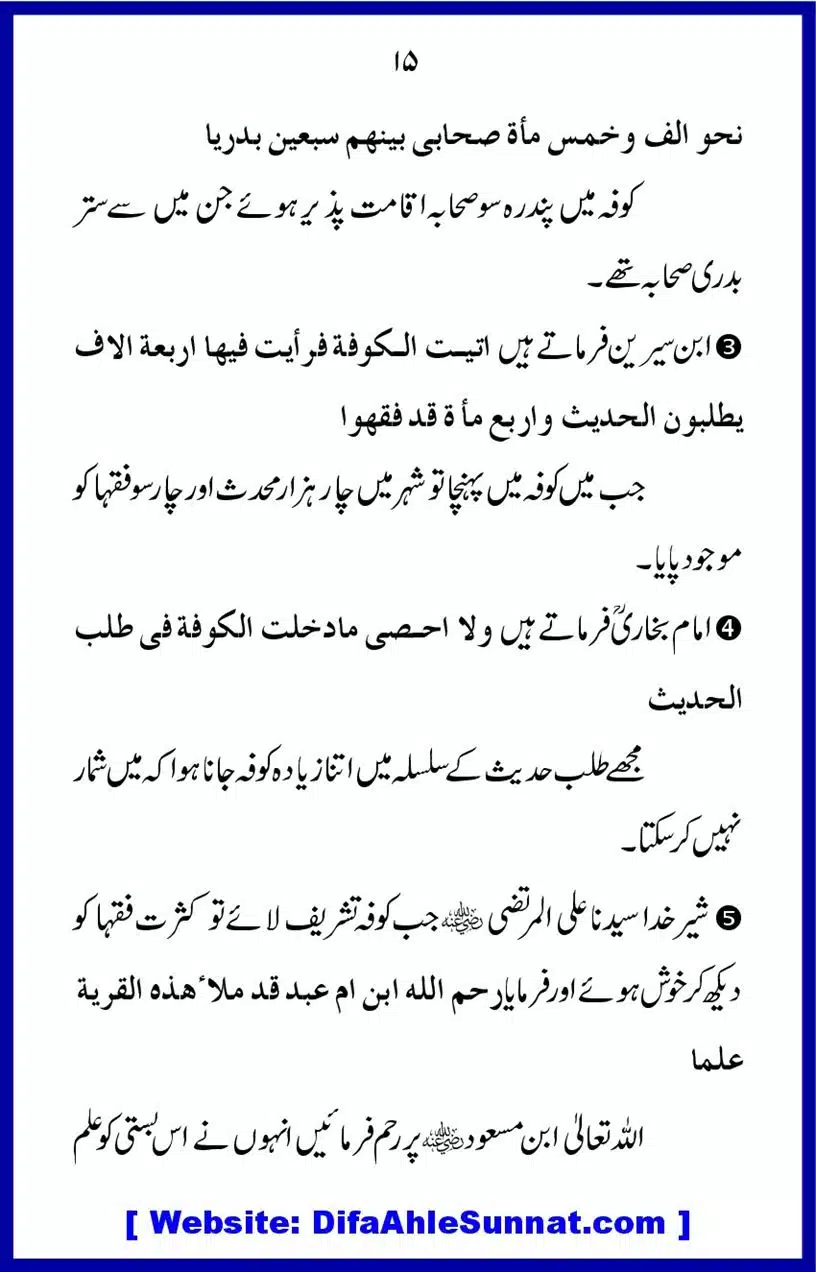 ۱۵
نحو الف وخمس مأة صحابی بینهم سبعین بدریا
کوفہ میں پندرہ سو صحابہ اقامت پذیر ہوئے جن میں سے ستر
بدری صحابہ تھے۔
❸ ابن سیرین فرماتے ہیں اتیت الکوفة فرأیت فیها اربعة الاف
یطلبون الحدیث واربع مأة قد فقهوا
جب میں کوفہ میں پہنچا تو شہر میں چار ہزار محدث اور چار سو فقہا کو
موجود پایا۔
❹ امام بخاریؒ فرماتے ہیں ولا احصی مادخلت الکوفة فی طلب
الحدیث
مجھے طلب حدیث کے سلسلہ میں اتنا زیادہ کوفہ جانا ہوا کہ میں شمار
نہیں کر سکتا۔
❺ شیر خدا سیدنا علی المرتضی رضی اللہ عنہ جب کوفہ تشریف لائے تو کثرت فقہا کو
دیکھ کر خوش ہوئے اور فرمایا رحم الله ابن ام عبد قد ملاٴ هذه القریة
علما
اللہ تعالیٰ ابن مسعود رضی اللہ عنہ پر رحم فرمائیں انہوں نے اس بستی کو علم
[ Website: DifaAhleSunnat.com ]